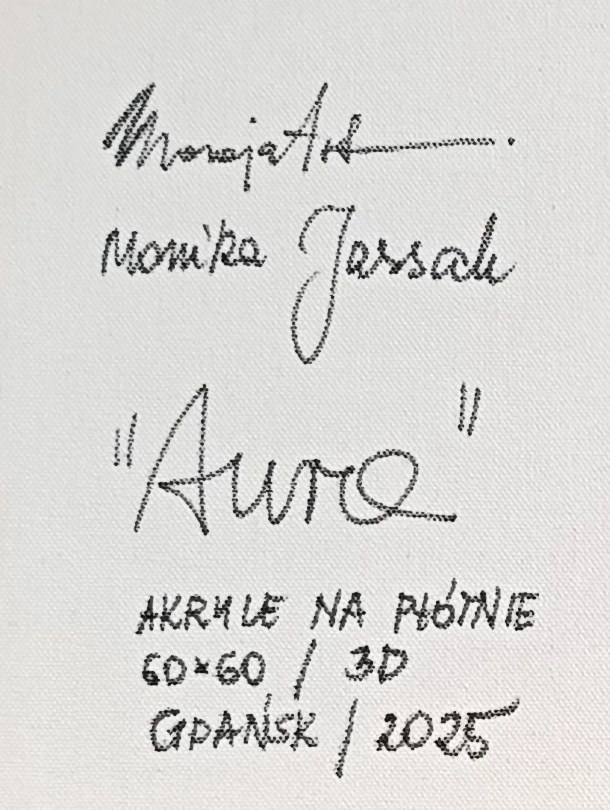 MorejaArt
Monika Jassak
"Aura"
AKRYLE NA PŁÓTNIE
60×60 / 3D
GDAŃSK / 2025